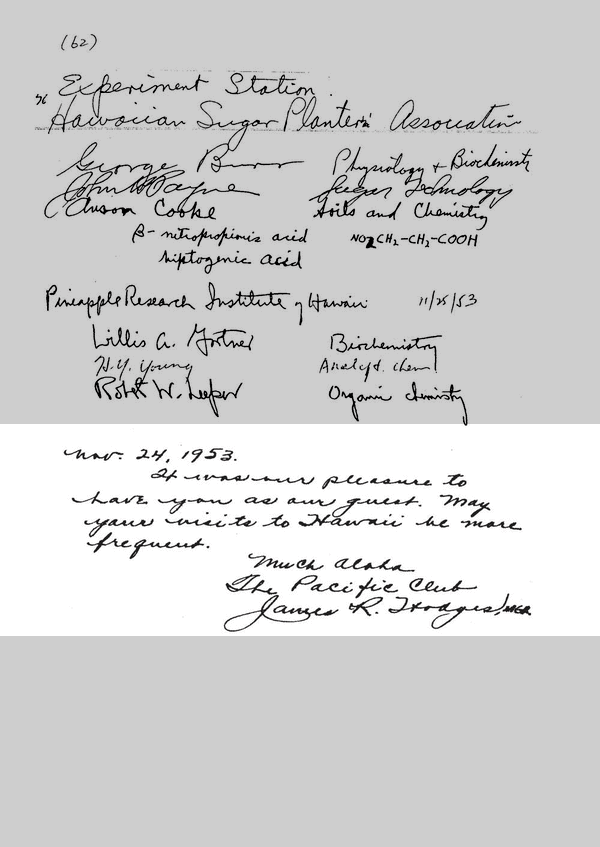 (62)
Experiment Station
Hawaiian Sugar Planters' Association
George Burr Physiology + Biochemistry
John H. Payne Sugar Technology
Anson Cooke Soils and Chemistry
β-nitropropionic acid NO2CH2-CH2-COOH
hiptogenic acid
Pineapple Research Institute of Hawaii 11/25/53
Willis A. Gortner Biochemistry
H.Y. Young Analyt. Chem.
Robert W. Leeper Organic chemistry
Nov. 24, 1953.
It was our pleasure to
have you as our guest. May
your visits to Hawaii be more
frequent.
Much aloha
The Pacific Club
James R. Hodges, MGR